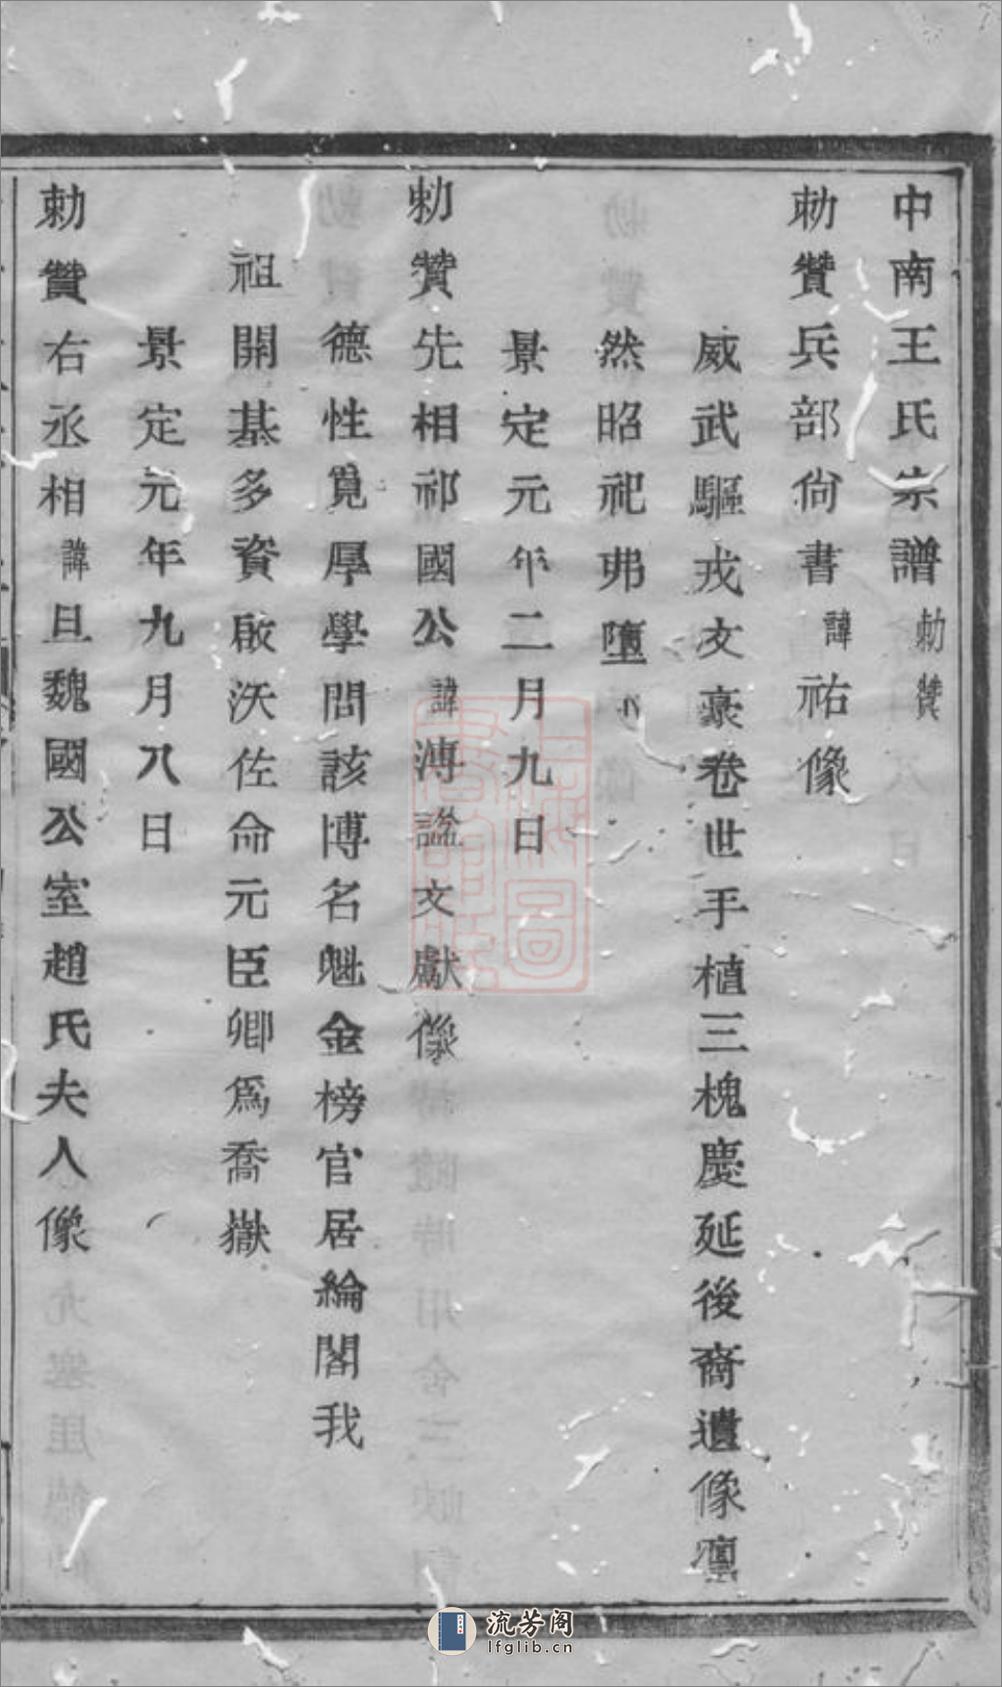 中南王氏宗譜 勅贊
勅贊兵部尙書諱祐像
威武驅戎文豪卷世手植三槐慶延後裔遺像凜
然昭祀弗墮
景定元年二月九日
勅贊先相祁國公諱溥諡文獻像
德性寬厚學問該博名魁金榜官居綸閣我
祖開基多資啟沃佐命元臣卿爲喬嶽
景定元年九月八日
勅贊右丞相諱旦魏國公室趙氏夫人像
流芳阁
lfglib.cn